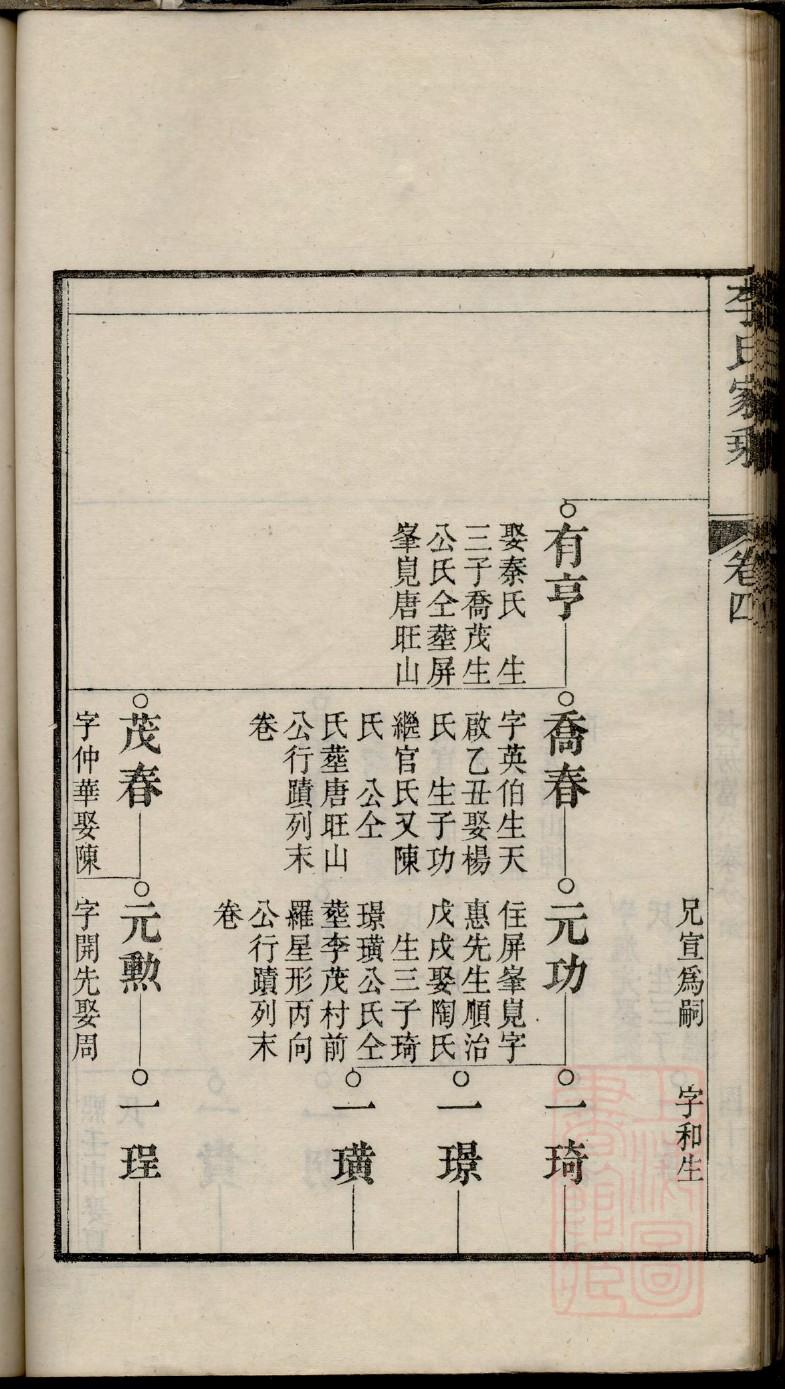 李氏家乘
卷四
兄宣爲嗣
字和生
有亨
娶秦氏　生
三子喬茂生
公氏仝塟屏
峯皃唐旺山
喬春
字英伯生天
啟乙丑娶楊
氏　生子功
繼官氏又陳
氏　公仝
氏塟唐旺山
公行蹟列末
卷
元功
住屏峯皃字
惠先生順治
戊戌娶陶氏
生三子琦
璟璜公氏仝
塟李茂村前
羅星形丙向
公行蹟列末
卷
一琦
一璟
一璜
茂春
字仲華娶陳
元勲
字開先娶周
一珵
上海圖書館藏